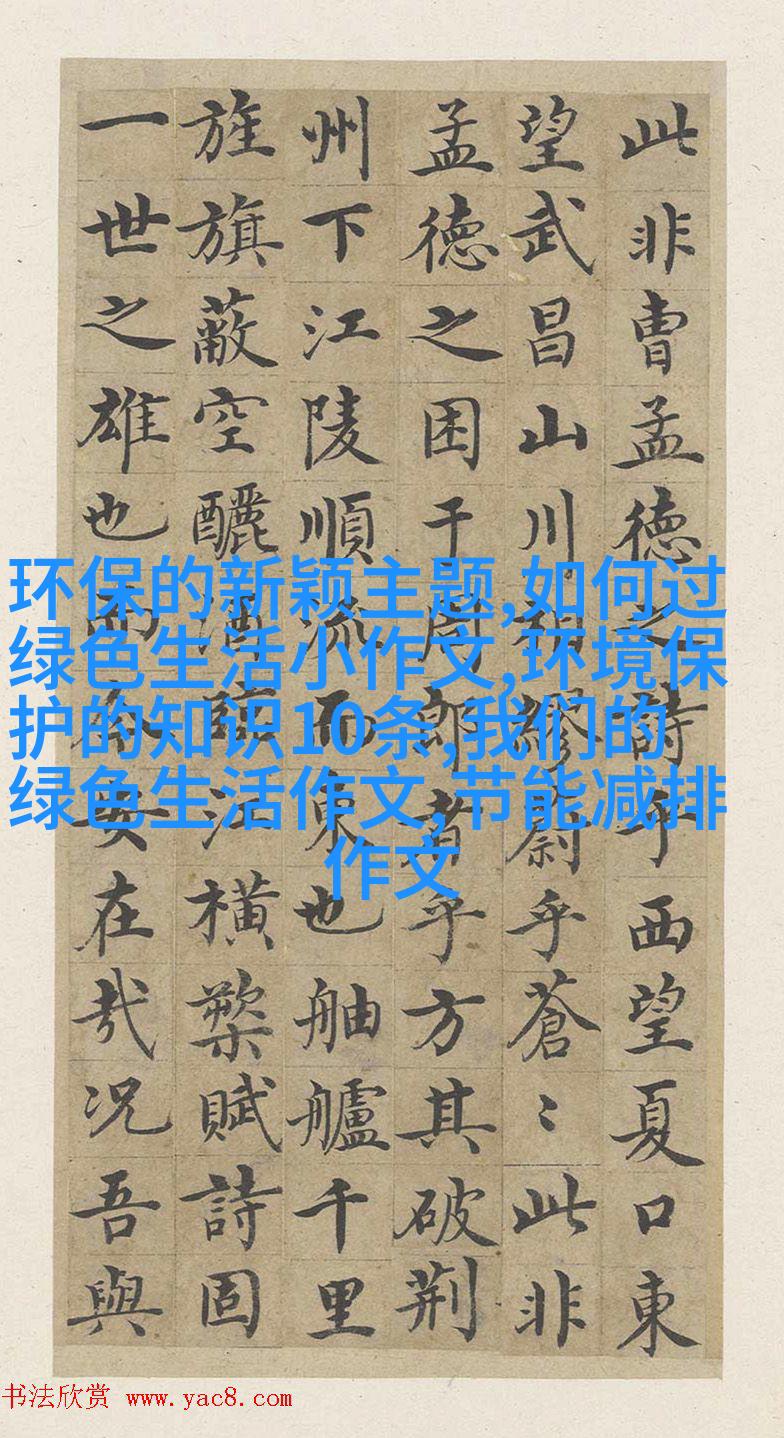 此非曹孟德之詩乎西望夏口東
望武昌山川相繆蔚乎蒼〻此非
孟德之困于周郎者乎方其破荆
州下江陵順流而東也舳艫千里
旌旗蔽空釃酒臨江横槊賦詩固
一世之雄也而今安在哉况吾與
环保的新颖主题,如何过
绿色生活小作文,环境保
护的知识10条,我们的
绿色生活作文,节能减排
作文
书法欣赏 www.yac8.com